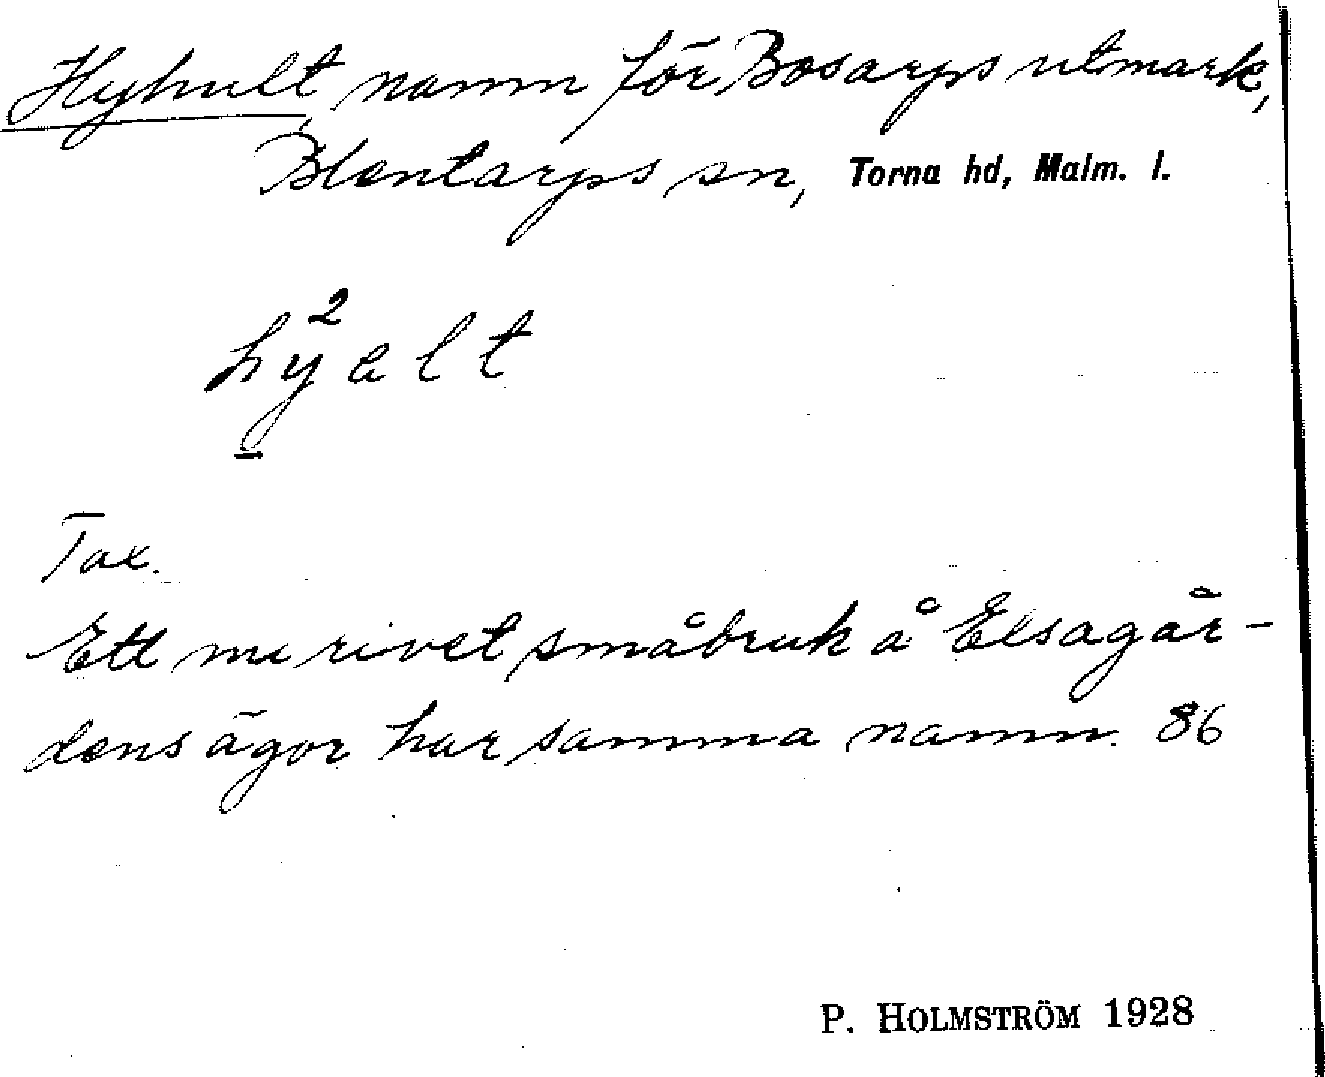 Hyhult, namn för Bosarps utmark,
Blentarps sn, Torna hd, Malm. l.
2
hyalt
Tax.
Ett nu rivet småbruk å Elsagår-
dens ägor har samma namn. 86
P. HOLMSTRÖM 1928